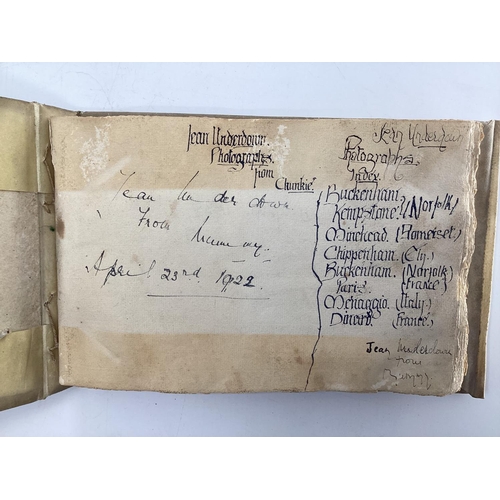 Jean Underdown.
Photographs
from
Chunkie.
Jean Underdown
From Mummy.
April 23rd 1922.
Jean Underdown
Photographs.
Index.
Buckenham.
Kempstone. (Norfolk)
Minehead. (Somerset.)
Chippenham.
Buckenham. (Norfolk)
Paris. (France)
Menaggio. (Italy.)
Dinard. (France.)
Jean Underdown
from
Mummy